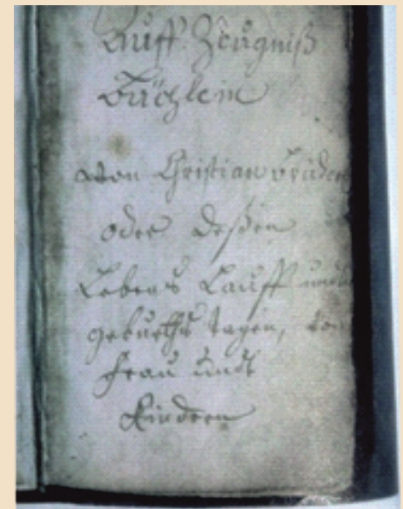 Tauff Zeugniß
Büchlein
von Christian Brüder
oder deßen
Lebens Lauff undt
geburths tagen, von
frau undt
Kindern